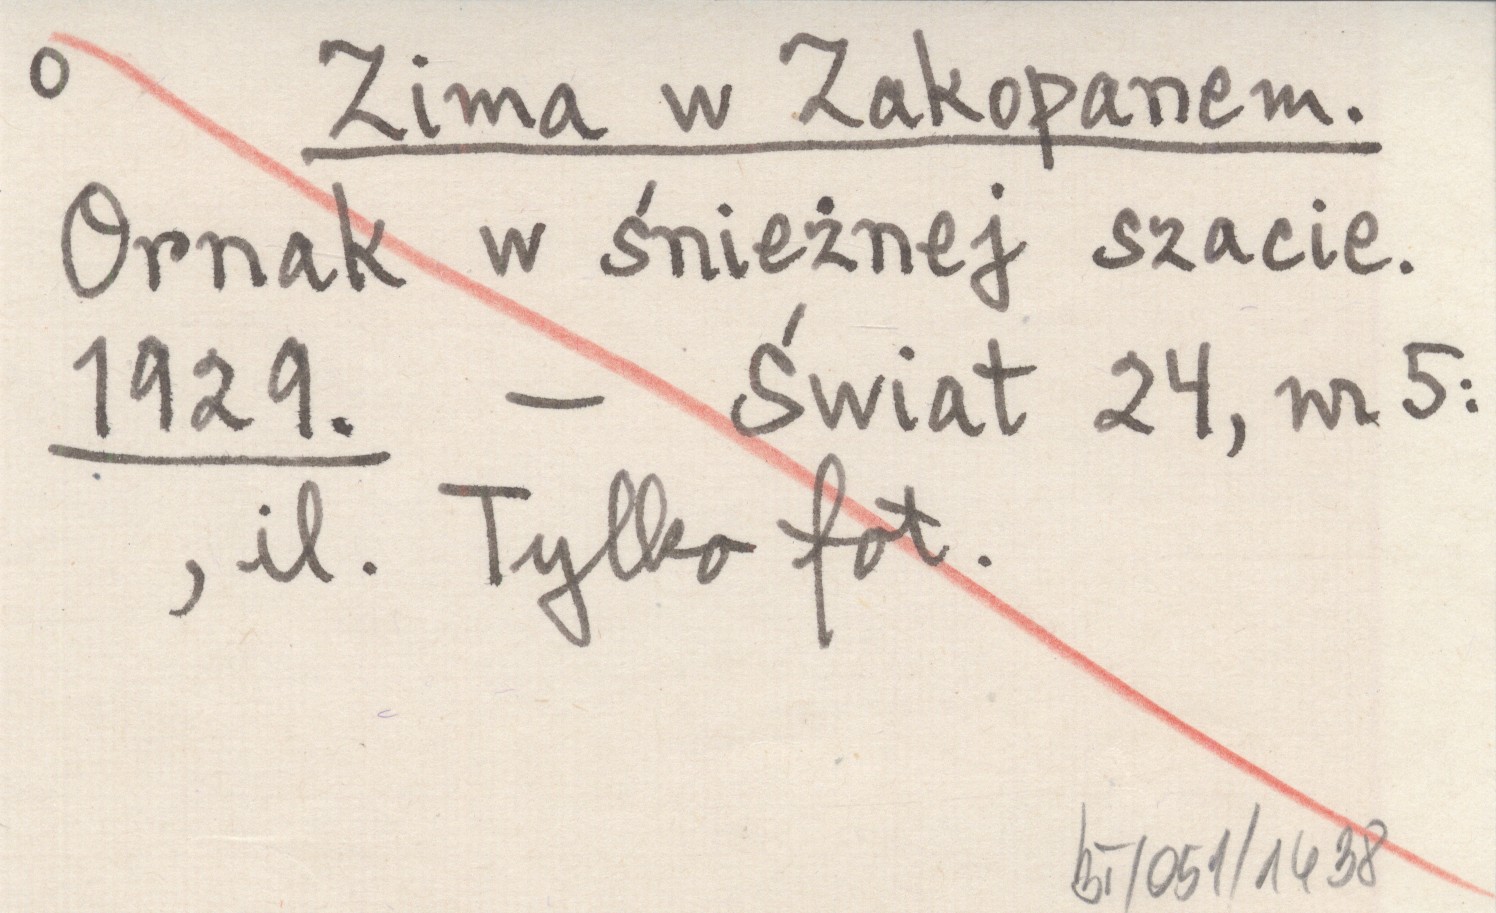 o Zima w Zakopanem.
Ornak w śnieżnej szacie.
1929. — Świat 24, nr 5:
, il. Tylko fot.
BT/051/1438